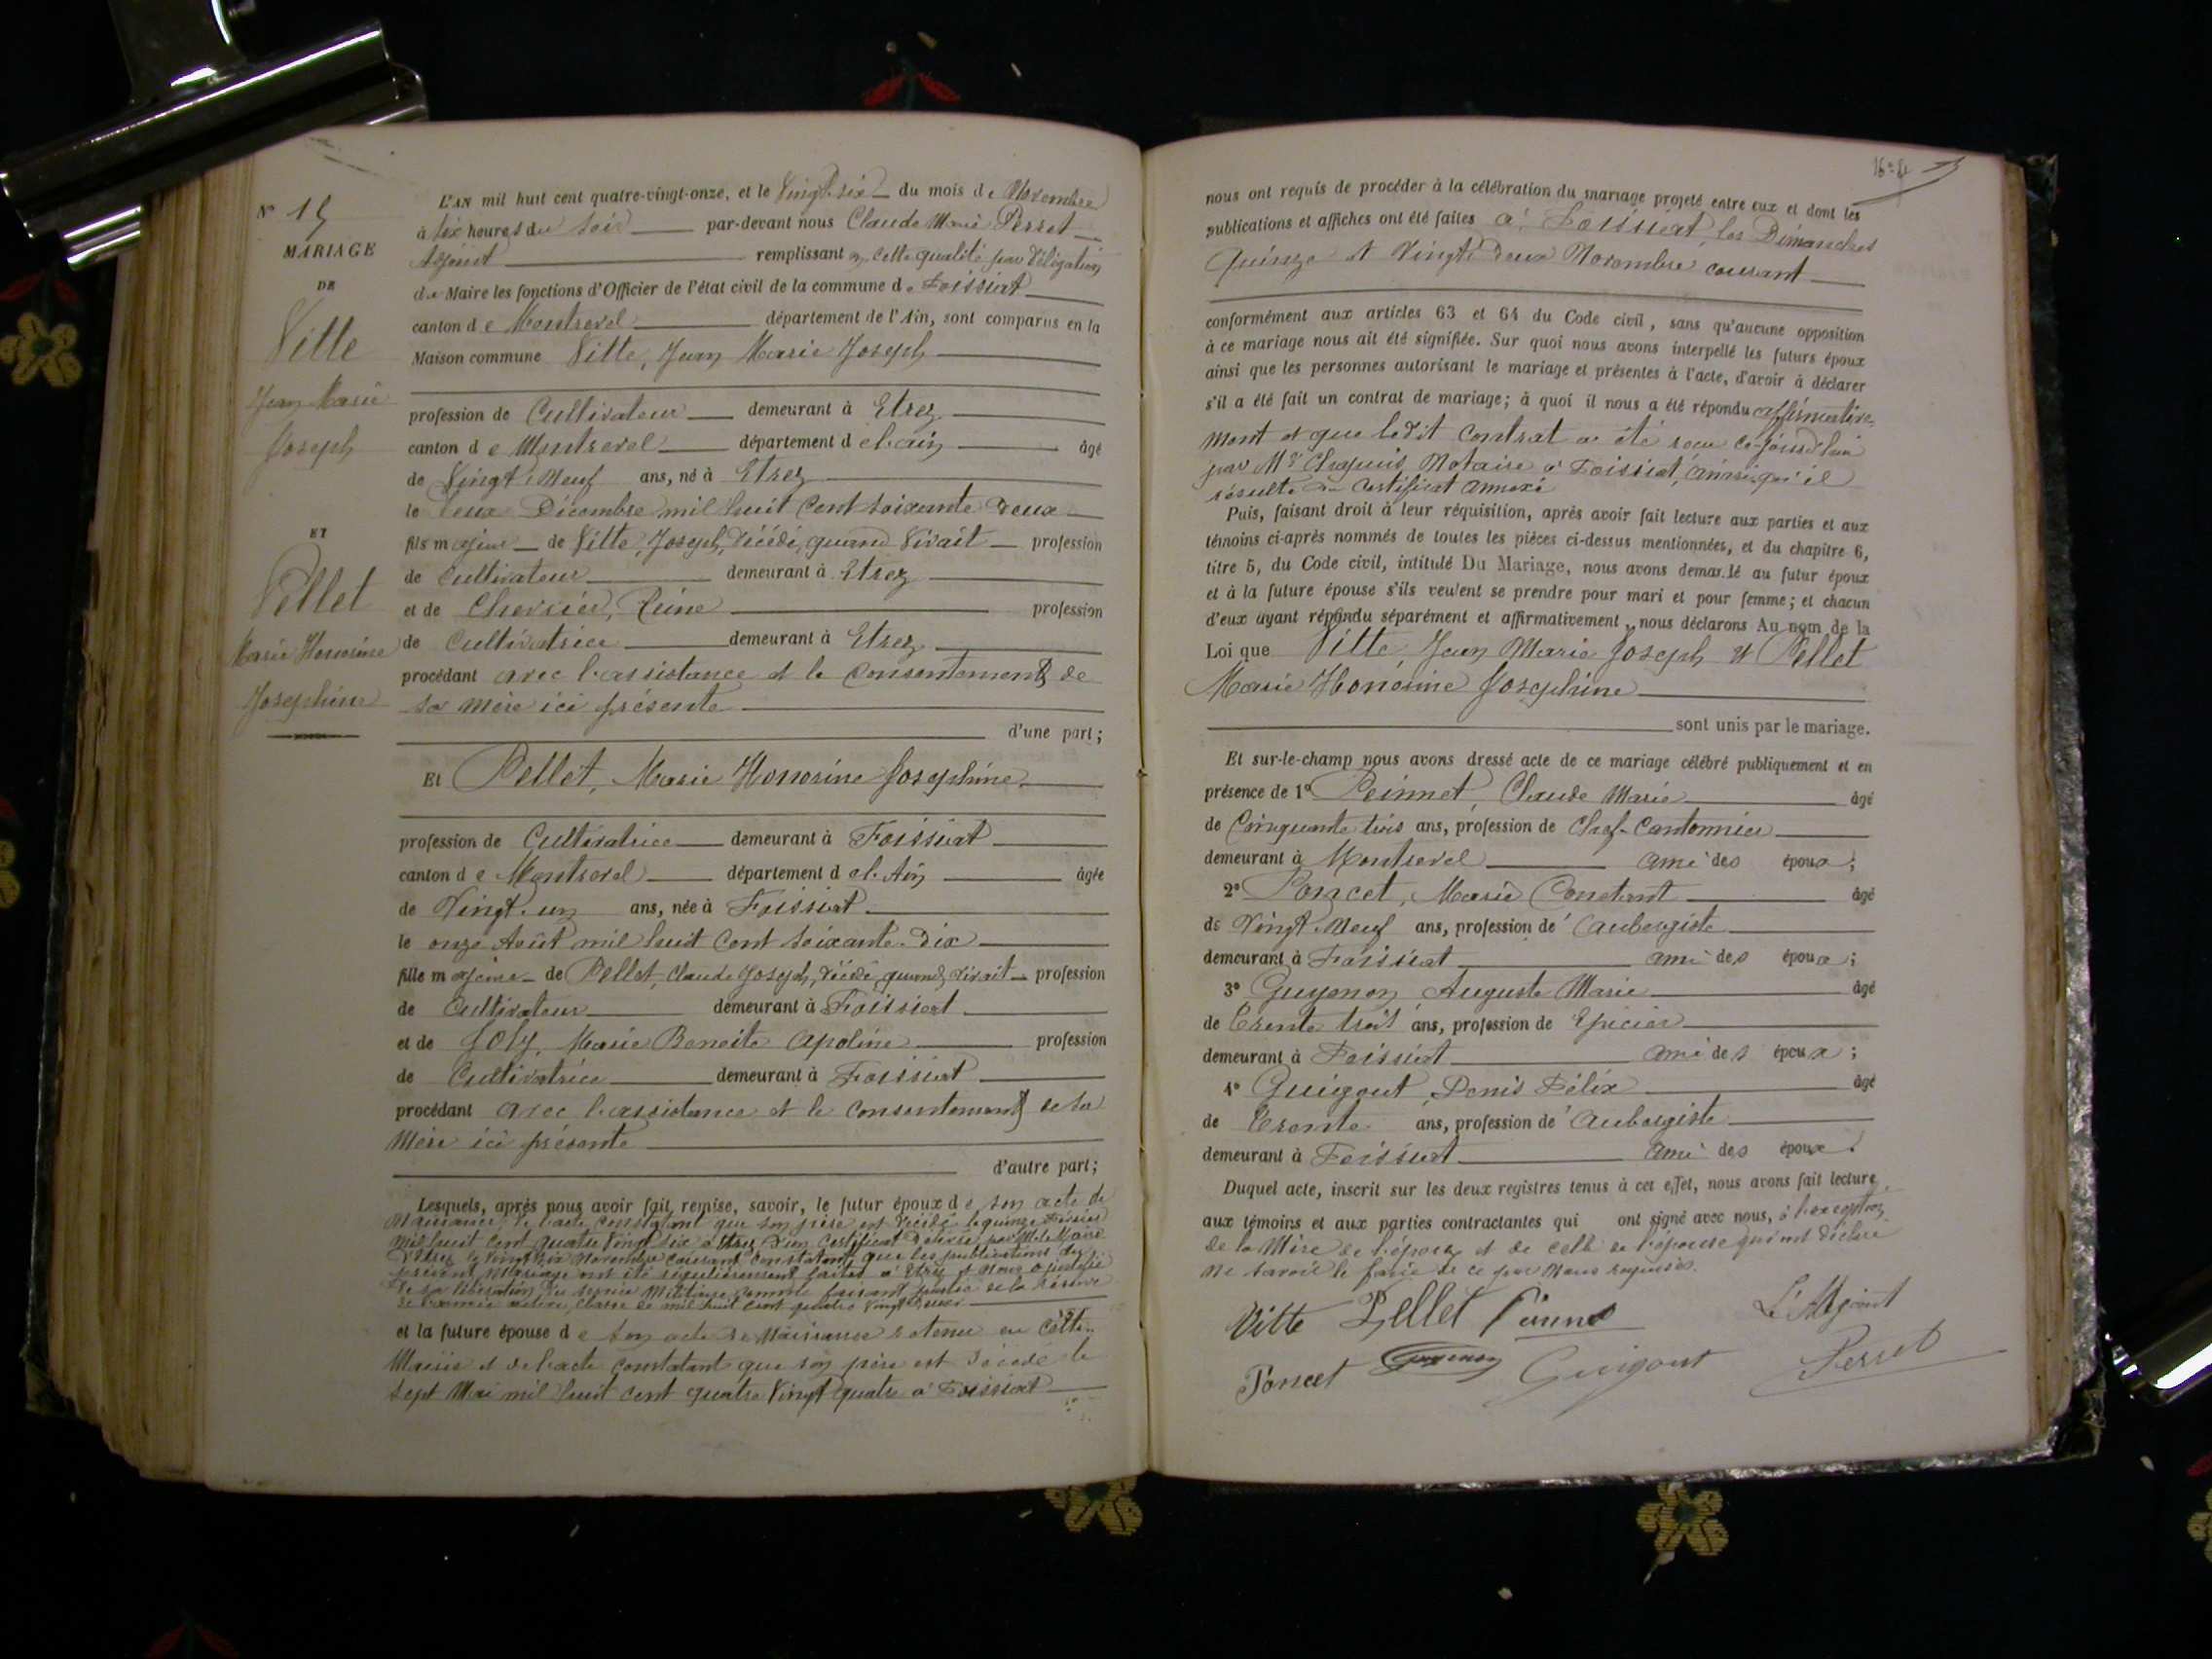 N° 15
MARIAGE
DE
Vitte
Jean Marie
Joseph
ET
Pellet
Marie Honorine
Josephine
L'AN mil huit cent quatre-vingt-onze, et le Vingt-six du mois de Novembre
à six heures du soir par-devant nous Claude Marie Perret
Adjoint remplissant en cette qualité par délégation
du Maire les fonctions d'Officier de l'état civil de la commune de Foissiat
canton de Montrevel département de l'Ain, sont comparus en la
Maison commune Vitte, Jean Marie Joseph
profession de Cultivateur demeurant à Etrez
canton de Montrevel département de l'ain âgé
de Vingt-Neuf ans, né à Etrez
le deux Décembre mil huit cent soixante deux
fils majeur de Vitte, Joseph, décédé, quand vivait profession
de cultivateur demeurant à Etrez
et de Chevrier, Reine profession
de Cultivatrice demeurant à Etrez
procédant avec l'assistance et le consentement de
sa mère ici présente
d'une part;
Et Pellet, Marie Honorine Josephine
profession de Cultivatrice demeurant à Foissiat
canton de Montrevel département de l'Ain âgée
de Vingt-un ans, née à Foissiat
le onze Août mil huit cent soixante-dix
fille majeure de Pellet, Claude Joseph, décédé, quand vivait profession
de Cultivateur demeurant à Foissiat
et de Joly, Marie Benoite Apoline profession
de Cultivatrice demeurant à Foissiat
procédant avec l'assistance et le consentement de sa
Mère ici présente
d'autre part;
Lesquels, après nous avoir fait remise, savoir, le futur époux de son acte de
Naissance, de l'acte constatant que son père est décédé le quinze Février
mil huit cent quatre vingt six à Etrez, d'un certificat délivré par Mr le Maire
d'Etrez le Vingt six Novembre courant constatant que les publications du
présent Mariage ont été régulièrement faites à Etrez et nous a justifié
de sa libération du service Militaire comme faisant partie de la réserve
de l'armée active, classe de mil huit cent quatre vingt deux
et la future épouse de son acte de Naissance retenu en cette
Mairie et de l'acte constatant que son père est décédé le
sept Mai mil huit cent quatre Vingt quatre à Foissiat
nous ont requis de procéder à la célébration du mariage projeté entre eux et dont les
publications et affiches ont été faites à Foissiat, les Dimanches
Quinze et Vingt-deux Novembre courant
conformément aux articles 63 et 64 du Code civil, sans qu'aucune opposition
à ce mariage nous ait été signifiée. Sur quoi nous avons interpellé les futurs époux
ainsi que les personnes autorisant le mariage et présentes à l'acte, d'avoir à déclarer
s'il a été fait un contrat de mariage; à quoi il nous a été répondu affirmative-
ment et que ledit contrat a été reçu ce-jourd'hui
par Me Chapuis Notaire à Foissiat, ainsi qu'il
résulte du certificat annexé
Puis, faisant droit à leur réquisition, après avoir fait lecture aux parties et aux
témoins ci-après nommés de toutes les pièces ci-dessus mentionnées, et du chapitre 6,
titre 5, du Code civil, intitulé Du Mariage, nous avons demandé au futur époux
et à la future épouse s'ils veulent se prendre pour mari et pour femme; et chacun
d'eux ayant répondu séparément et affirmativement, nous déclarons Au nom de la
Loi que Vitte, Jean Marie Joseph et Pellet
Marie Honorine Josephine
sont unis par le mariage.
Et sur-le-champ nous avons dressé acte de ce mariage célébré publiquement et en
présence de 1° Claude Marie âgé
de Cinquante trois ans, profession de Chef-Cantonnier
demeurant à Montrevel ami des époux;
2° Poncet, Marie Constant âgé
de Vingt-Neuf ans, profession de aubergiste
demeurant à Foissiat ami des époux;
3° Guyenon Auguste Marie âgé
de trente trois ans, profession de Epicier
demeurant à Foissiat ami des époux;
4° Guigout, Denis Félix âgé
de trente ans, profession de Aubergiste
demeurant à Foissiat ami des époux.
Duquel acte, inscrit sur les deux registres tenus à cet effet, nous avons fait lecture
aux témoins et aux parties contractantes qui ont signé avec nous, à l'exception
de la Mère de l'époux et de celle de l'épouse qui ont déclaré
ne savoir le faire de ce par nous requises.
Vitte Pellet
L'Adjoint
Poncet Guyenon Guigout Perret